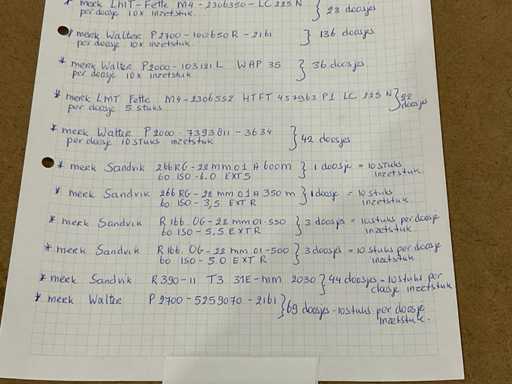 * merk LMT-Fette M4-2306350-LC 225 N } 23 doosjes
per doosje 10x inzetstuk.
* merk Walter P2700-1002650 R-2161 } 136 doosjes
per doosje 10x inzetstuk.
* merk Walter P2000-103121 L WAP 35 } 36 doosjes.
per doosje 10x inzetstuk
* merk LMT Fette M4-2306552 HTFT 457963 P1 LC 225 N } 22 doosjes
per doosje 5 stuks
* merk Walter P2000-7393811-3634 } 42 doosjes
per doosje 10 stuks inzetstuk
* merk Sandvik 266 RG-22 mm 01 A 600 m } 1 doosje = 10 stuks
60 ISO-6.0 EXT S inzetstuk.
* merk Sandvik 266 RG-22 mm 01 A 350 m } 1 doosje = 10 stuks
60 ISO-3,5 EXT R inzetstuk.
* merk Sandvik R 166. OG-22 mm 01-550 } 3 doosjes = 10 stuks per doosje
60 ISO-5,5 EXT R inzetstuk.
* merk Sandvik R 166. OG-22 mm .01-500 } 3 doosjes = 10 stuks per doosje
60 ISO-5.0 EXT R inzetstuk.
* merk Sandvik R390-11 T3 31E-mm 2030 } 44 doosjes = 10 stuks per
doosje inzetstuk
* merk Walter P2700-5259070-2161 } 69 doosjes - 10 stuks per doosje
inzetstuk.